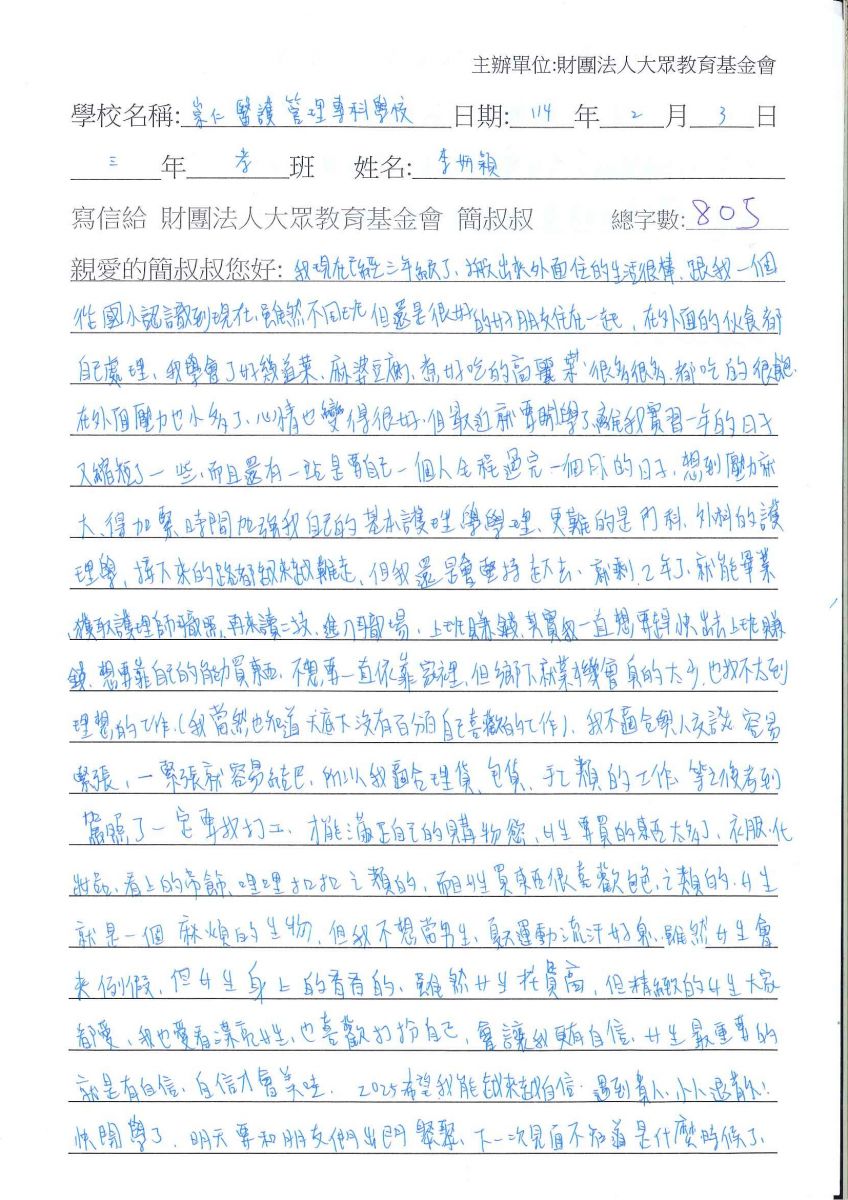 主辦單位:財團法人大眾教育基金會
學校名稱: 崇仁醫護管理專科學校 日期: 114 年 2 月 3 日
三 年 孝 班 姓名: 李姍穎
寫信給 財團法人大眾教育基金會 簡叔叔 總字數: 805
親愛的簡叔叔您好: 我現在已經三年級了、搬出來外面住的生活很棒、跟我一個
從國小認識到現在、雖然不同班但還是很好的好朋友住在一起、在外面的伙食都
自己處理、我學會了好幾道菜、麻婆豆腐、煮好吃的高麗菜、很多很多、都吃的很飽、
在外面壓力也小多了、心情也變得很好、但最近就要開學了、離我實習一年的日子
又縮短了一些、而且還有一站是要自己一個人全程過完一個月的日子、想到壓力就
大、得加緊時間加強我自己的基本護理學學理、更難的是內科、外科的護
理學、接下來的路都越來越難走、但我還是會堅持走下去、就剩2年了、就能畢業
獲取護理師職照、再來讀二技、進入職場、上班賺錢、其實我一直想要趕快出去上班賺
錢、想要靠自己的能力買東西、不想要一直依靠家裡、但鄉下就業機會真的太少、也找不太到
理想的工作、(我當然也知道天底下沒有百分百自己喜歡的工作)、我不適合與人交談、容易
緊張、一緊張就容易結巴、所以我適合理貨、包貨、手工類的工作、等之後考到
駕照了一定要找打工、才能滿足自己的購物慾、女生要買的東西太多了、衣服、化
妝品、看上的吊飾、哩哩扣扣之類的、而且女生買東西很喜歡包色之類的、女生
就是一個麻煩的生物、但我不想當男生、夏天運動流汗好臭、雖然女生會
來例假、但女生身上的香香的、雖然女生花費高、但精緻的女生大家
都愛、我也愛看漂亮女生、也喜歡打扮自己、會讓我更有自信、女生最重要的
就是有自信、自信才會美哇、2025希望我能越來越自信、遇到貴人、小人退散!
快開學了、明天要和朋友們出門聚聚、下一次見面不知道是什麼時候了、